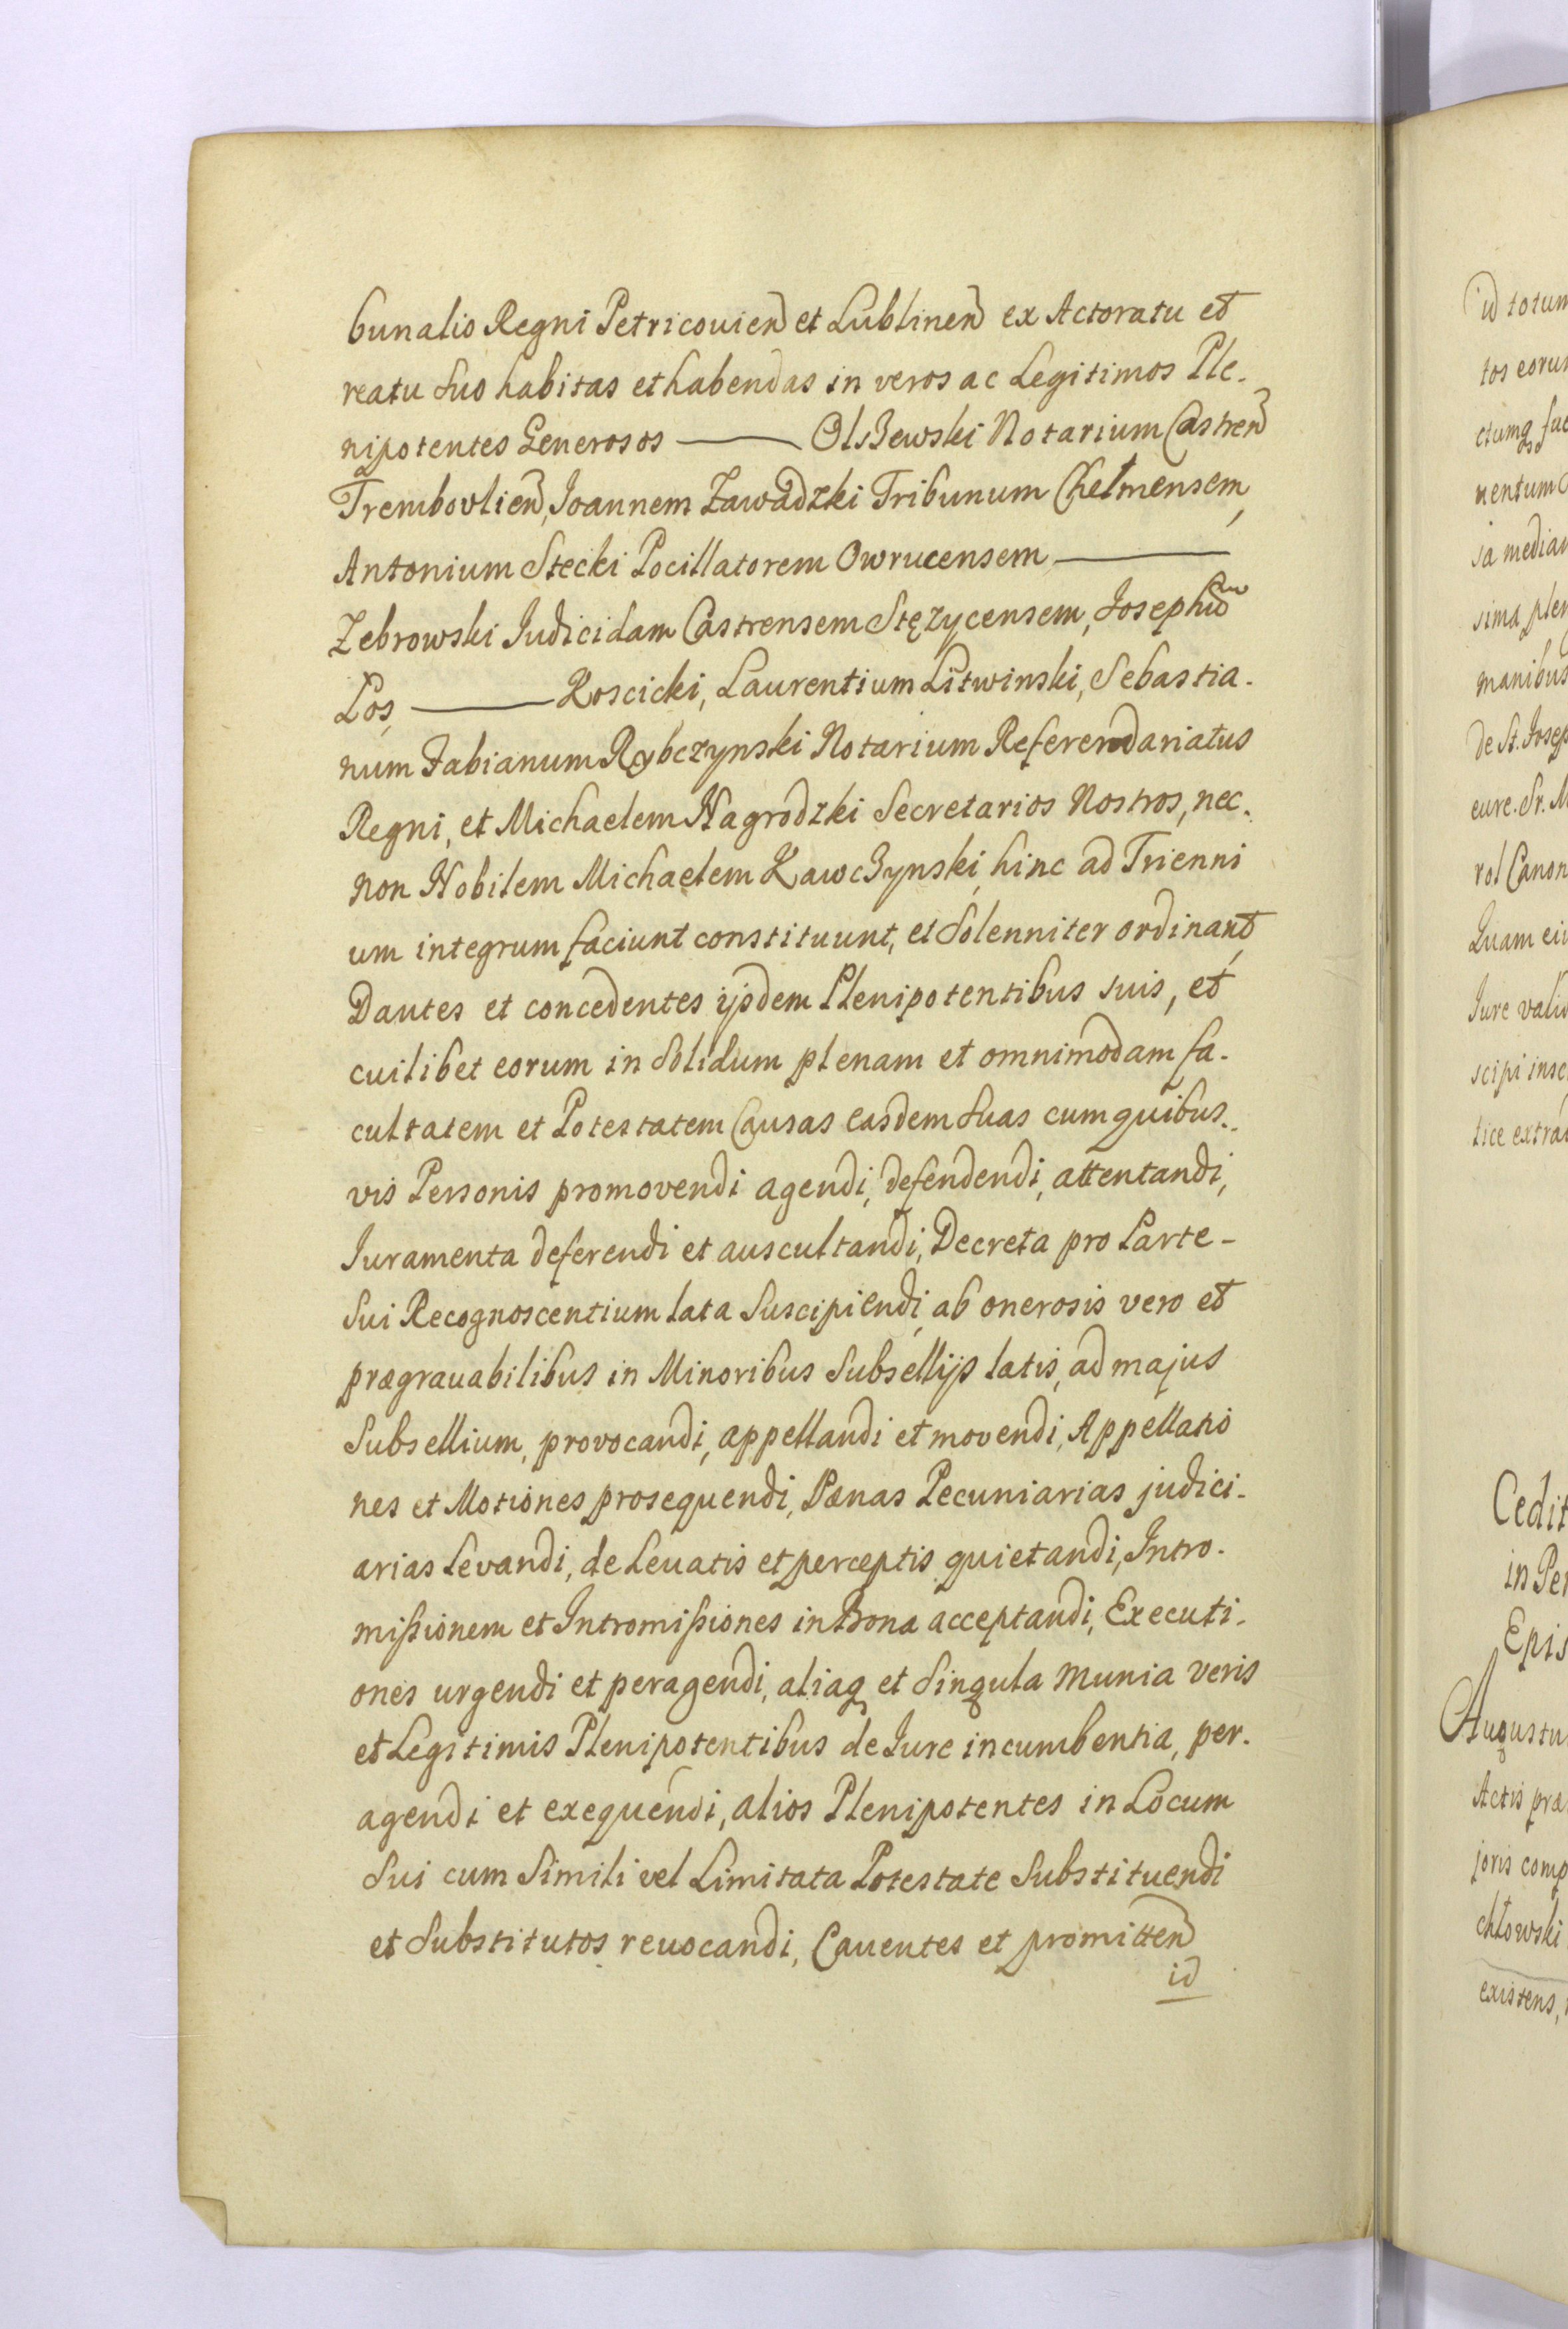 bunalis Regni Petricouien et Lublinen ex Actoratu et
reatu suo habitas et habendas in veros ac Legitimos Ple-
nipotentes Generosos ——— Olszewski Notarium Castren
Trembovlien, Joannem Zawadzki Tribunum Chełmensem,
Antonium Stecki Pocillatorem Owrucensem ———
Zebrowski Judicidam Castrensem Stęzycensem, Josephum
Łos, ——— Koscicki, Laurentium Litwinski, Sebastia-
num Fabianum Rybczynski Notarium Referendariatus
Regni, et Michaelem Nagrodzki Secretarios Nostros, nec-
non Nobilem Michaelem Kawczynski, hinc ad Trienni
um integrum faciunt constituunt, et Solenniter ordinant,
Dantes et concedentes ijsdem Plenipotentibus suis, et
cuilibet eorum in Solidum plenam et omnimodam fa-
cultatem et Potestatem Causas easdem Suas cum quibus-
vis Personis promovendi agendi, defendendi, attentandi,
Juramenta deferendi et auscultandi, Decreta pro Parte-
Sui Recognoscentium lata Suscipiendi, ab onerosis vero et
prægrauabilibus in Minoribus Subsellijs latis, ad majus
Subsellium, provocandi, appellandi et movendi, Appellatio
nes et Motiones prosequendi, Pœnas Pecuniarias judici-
arias Levandi, de Leuatis et perceptis quietandi, Intro-
missionem et Intromissiones in Bona acceptandi, Executi-
ones urgendi et peragendi, aliaq et Singula munia veris
et Legitimis Plenipotentibus de Jure incumbentia, per-
agendi et exequendi, alios Plenipotentes in Locum
Sui cum Simili vel Limitata Potestate Substituendi
et Substitutos reuocandi, Cauentes et promitten
id
id totum
tos eorum
ctumq
nentum
sa median
sima plen
manibus
de St. Josep
eure. Sr. M
rol Canon
Quam
Jure valid
scipi
tice extra
Cedit
in Per
Epis
Augustu
Actis præ
joris comp
chłowski
existens,